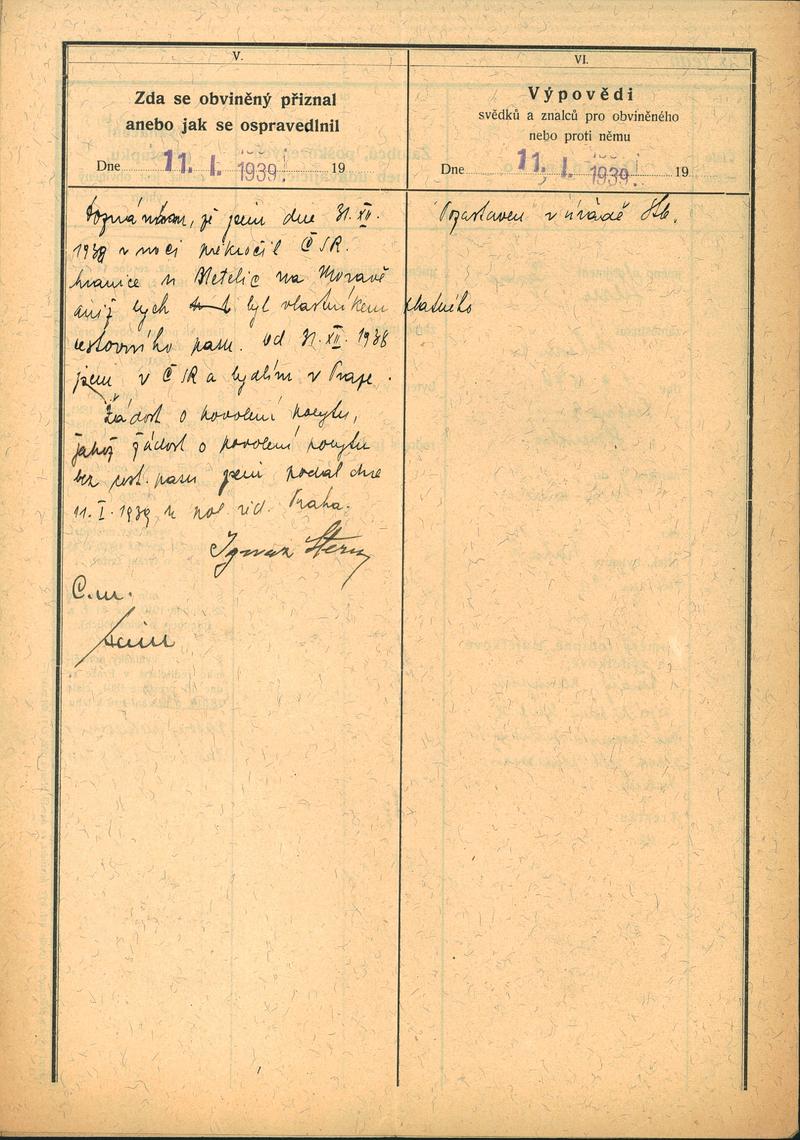 V.
Zda se obviněný přiznal
anebo jak se ospravedlnil
Dne 11. I. 1939. 19
Doznávám, že jsem dne 31. XII.
1938 v noci překročil ČSR.
hranice u Metelic na Moravě
aniž bych byl vlastníkem platného
cestovního pasu. Od 31. XII. 1938
jsem v ČSR a bydlím v Praze.
Žádost o povolení pobytu,
jakož žádost o povolení pobytu
bez cest. pasu jsem podal dne
11. I. 1939 u pol. řed. Praha.
Ignaz Stern
C.m.
VI.
Výpovědi
svědků a znalců pro obviněného
nebo proti němu
Dne 11. I. 1939. 19
Pozastaven v úřadě